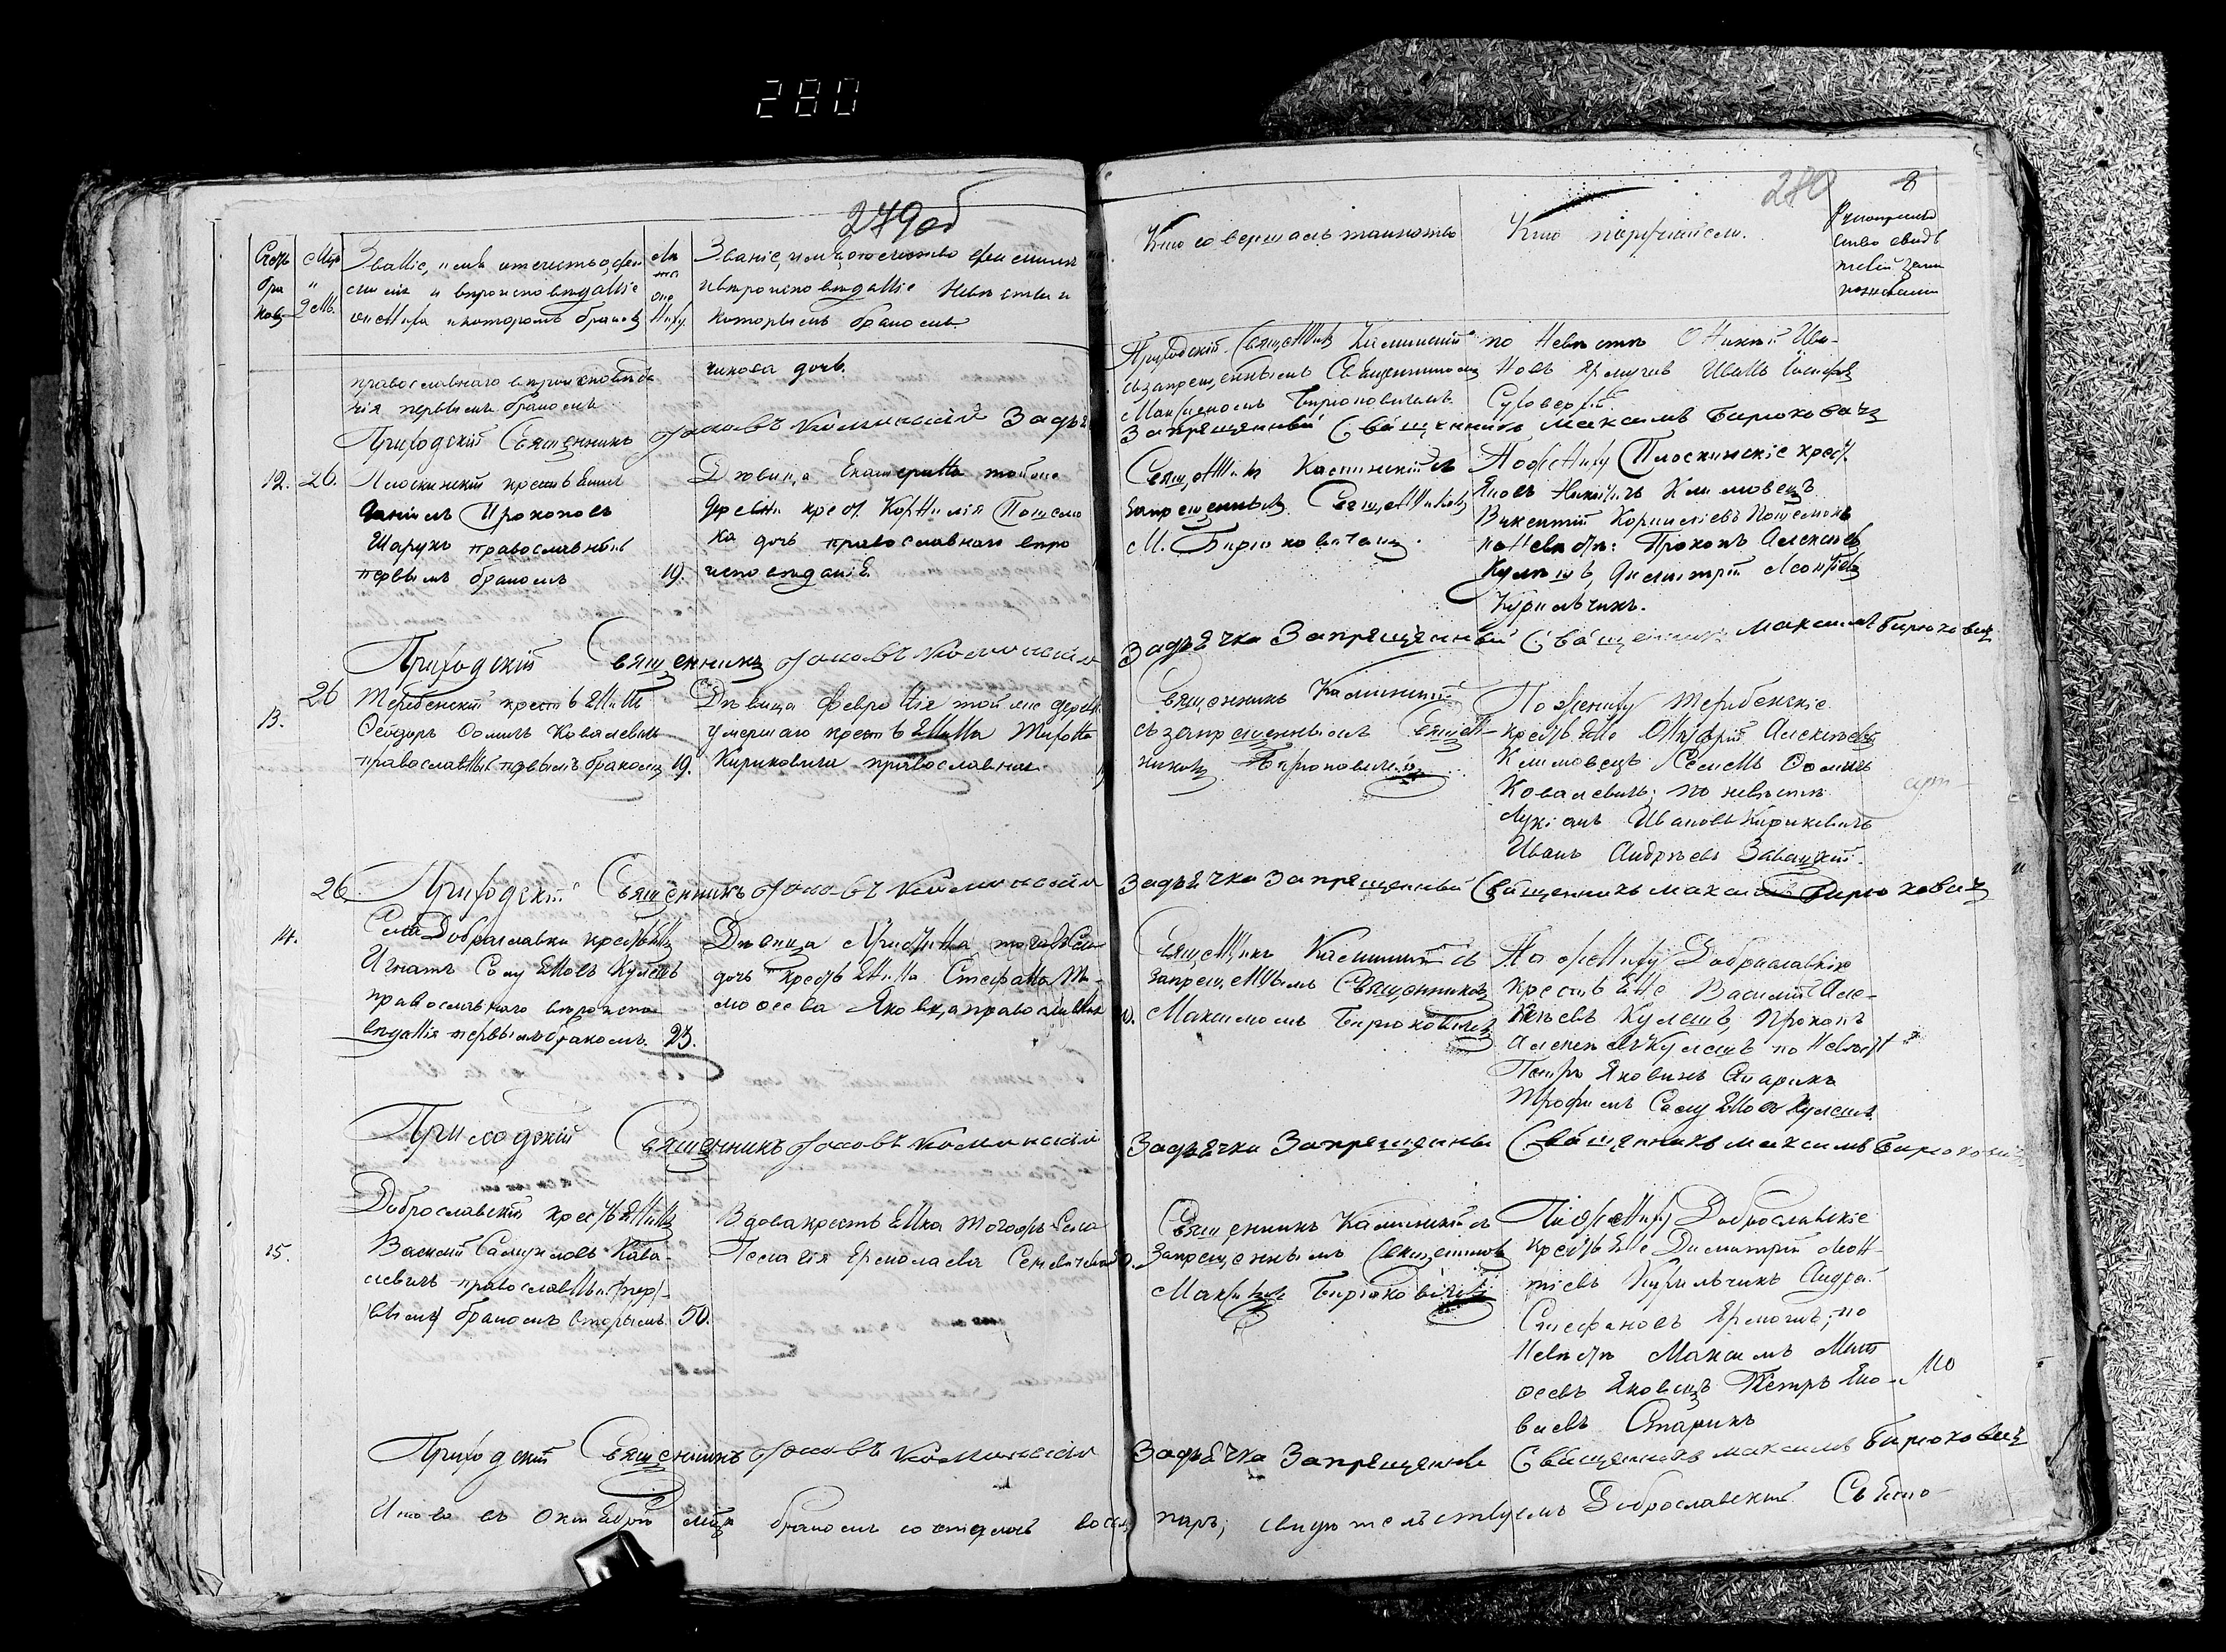 280
279об
280
8
Счетъ браковъ
Мѣр. и день
Званіе, имя отечество, фамилія и вѣроисповѣданіе жениха и которымъ бракомъ
Лѣта жениху
Званіе, имя, отечество фамилія и вѣроисповѣданіе невѣсты и которымъ бракомъ
Кто совершалъ таинство
Кто поручители.
православнаго вѣроисповѣда
нія первымъ бракомъ
чикова дочь.
Приходскій Священникъ Каминскій
съ запрещеннымъ Священникомъ
Максимомъ Бирюковичемъ
по Невѣстѣ Оникій Ива-
новъ Ярмучъ Иванъ Іосифов
Приходскій Священникъ Яковъ Каминскій За дья
Запрещенный Священникъ Максимъ Бирюковичъ
12. 26. Плоскинскій крестьянинъ
Даніилъ Прокоповъ
Шарухъ православный
первымъ бракомъ
19.
Дѣвица Екатерина той же
деревни крест. Корнилія Пошелю
ка дочь православнаго вѣро
исповѣданіе.
Священникъ Каминскій съ
запрещеннымъ Священником
М. Бирюковичемъ.
По жениху Плоскинскіе крест.
Яковъ Никитичъ Климовецъ
Викентій Корниліевъ Пошелюкъ
по Невѣстѣ: Прокопъ Алексѣев
Кулешъ, Димитрій Леонтіев
Курильчикъ.
Приходскій Священникъ Яковъ Каминскій
За дьячка Запрещенный Священникъ Максимъ Бирюковичъ
13. 26 Теребенскій крестьянинъ
Ѳеодоръ Ѳоминъ Ковалевичъ
православный первымъ бракомъ 19.
Дѣвица Февронія той же деревни
умершаго крестьянина Тихона
Кириковича православная
Священникъ Каминскій
съ запрещеннымъ Священ-
никомъ Бирюковичемъ
По жениху Теребенскіе
крестьяне Онуфрій Алексѣевъ
Климовецъ Семенъ Ѳоминъ
Ковалевичъ; по невѣстѣ
Лукіанъ Ивановъ Кириковичъ
Иванъ Андреевъ Завацкій.
Приходскій Священникъ Яковъ Каминскій
За дьячка Запрещенный Священникъ Максимъ Бирюковичъ
14. 26. Села Доброславки крестьянинъ
Игнатъ Самуйловъ Кулешъ
православнаго вѣроиспо
вѣданія первымъ бракомъ. 23.
Дѣвица Христина того же Села
дочь крестьянина Стефана Ти-
моѳеева Яковца православная
Священникъ Каминскій съ
запрещеннымъ Священникомъ
Максимомъ Бирюковичемъ
По жениху Доброславскіе
крестьяне Василій Але-
ксѣевъ Кулешъ, Прокопъ
Алексѣевъ Кулешъ по Невѣст
Петръ Яковинъ Старикъ
Трофимъ Самуйловъ Кулешъ
Приходскій Священникъ Яковъ Каминскій
За дьячка Запрещенны Священникъ Максимъ Бирюкович
15. Доброславскій крестьянинъ
Василій Самуиловъ Кова-
левичъ православный (пер)-
(вымъ) бракомъ вторымъ 50.
Вдова крестьянка того же Села
Пелагія Ермолаева
Священникъ Каминскій съ
Запрещеннымъ Священником
Максимомъ Бирюковичемъ
По жениху Доброславскіе
крестьяне Димитрій Леон-
тіевъ Курильчикъ Андрей
Стефановъ Ярмоличъ; по
Невѣстѣ Максимъ Тим
оѳеевъ Яковецъ Петръ Яко-
влевъ Старикъ
Приходскій Священникъ Яковъ Каминскій
За дьячка Запрещенны Священникъ Максимъ Бирюковичъ
Итого въ Октябрѣ мѣця бракомъ сочеталось восемь паръ; свидѣтельствуемъ Доброславскій